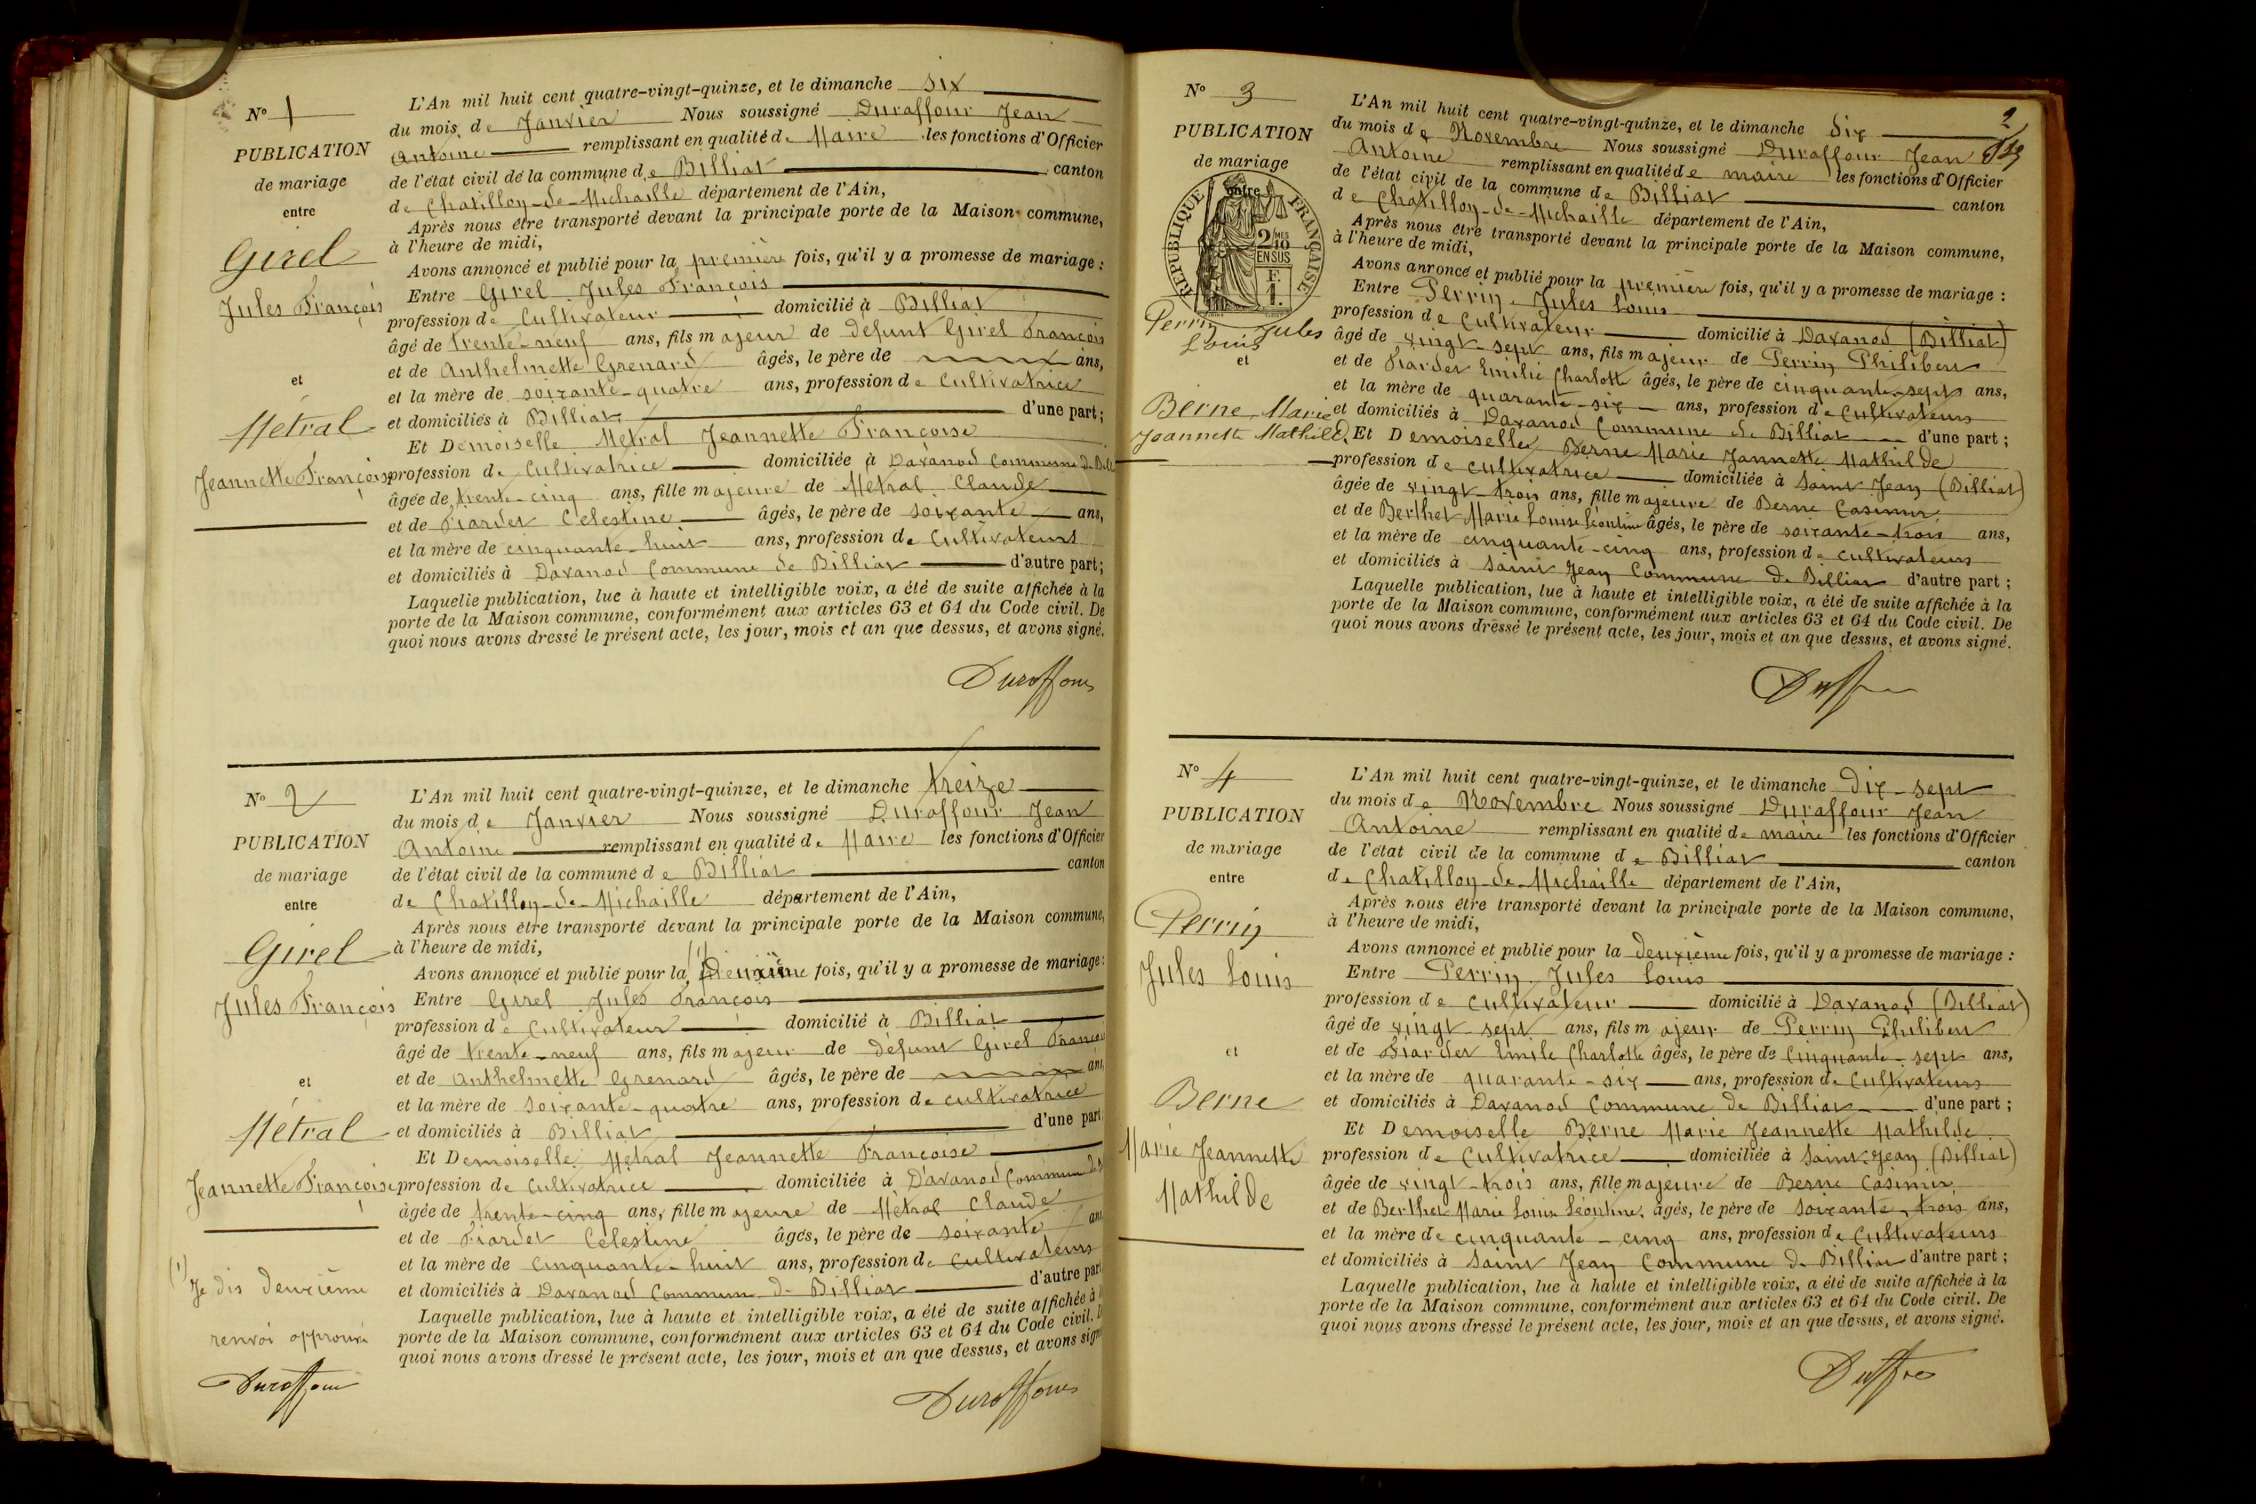 N° 1
PUBLICATION
de mariage
entre
Girel
Jules François
et
Métral
Jeannette Françoise
L'An mil huit cent quatre-vingt-quinze, et le dimanche six
du mois de Janvier Nous soussigné Duraffour Jean
Antoine remplissant en qualité de Maire les fonctions d'Officier
de l'état civil de la commune de Billiat canton
de Chatillon-de-Michaille département de l'Ain,
Après nous être transporté devant la principale porte de la Maison commune,
à l'heure de midi,
Avons annoncé et publié pour la première fois, qu'il y a promesse de mariage :
Entre Girel Jules François
profession de Cultivateur domicilié à Billiat
âgé de trente-neuf ans, fils majeur de défunt Girel François
et de Anthelmette Grenard âgés, le père de ans,
et la mère de soixante-quatre ans, profession de Cultivatrice
et domiciliés à Billiat d'une part ;
Et Demoiselle Métral Jeannette Françoise
profession de Cultivatrice domiciliée à Davanod Commune de Bill
âgée de trente-cinq ans, fille majeure de Métral Claude
et de Fiardet Célestine âgés, le père de soixante ans,
et la mère de cinquante-huit ans, profession de Cultivateurs
et domiciliés à Davanod Commune de Billiat d'autre part ;
Laquelle publication, lue à haute et intelligible voix, a été de suite affichée à la
porte de la Maison commune, conformément aux articles 63 et 64 du Code civil. De
quoi nous avons dressé le présent acte, les jour, mois et an que dessus, et avons signé.
Duraffour
N° 2
PUBLICATION
de mariage
entre
Girel
Jules François
et
Métral
Jeannette Françoise
(1) Je dis deuxième
renvoi approuvé
Duraffour
L'An mil huit cent quatre-vingt-quinze, et le dimanche treize
du mois de Janvier Nous soussigné Duraffour Jean
Antoine remplissant en qualité de Maire les fonctions d'Officier
de l'état civil de la commune de Billiat canton
de Chatillon-de-Michaille département de l'Ain,
Après nous être transporté devant la principale porte de la Maison commune,
à l'heure de midi,
Avons annoncé et publié pour la (1) Deuxième fois, qu'il y a promesse de mariage :
Entre Girel Jules François
profession de Cultivateur domicilié à Billiat
âgé de trente-neuf ans, fils majeur de défunt Girel François
et de Anthelmette Grenard âgés, le père de ans,
et la mère de soixante-quatre ans, profession de cultivatrice
et domiciliés à Billiat d'une part
Et Demoiselle Métral Jeannette Françoise
profession de Cultivatrice domiciliée à Davanod Commune de
âgée de trente-cinq ans, fille majeure de Métral Claude
et de Fiardet Célestine âgés, le père de soixante ans
et la mère de cinquante-huit ans, profession de Cultivateurs
et domiciliés à Davanod Commune de Billiat d'autre part
Laquelle publication, lue à haute et intelligible voix, a été de suite affichée à
porte de la Maison commune, conformément aux articles 63 et 64 du Code civil. D
quoi nous avons dressé le présent acte, les jour, mois et an que dessus, et avons signé
Duraffour
2
N° 3
PUBLICATION
de mariage
entre
RÉPUBLIQUE FRANÇAISE
2 MES 10 EN SUS
F. 1.
Perrin Jules
Louis
et
Berne Marie
Jeannette Mathilde
L'An mil huit cent quatre-vingt-quinze, et le dimanche dix
du mois de Novembre Nous soussigné Duraffour Jean
Antoine remplissant en qualité de maire les fonctions d'Officier
de l'état civil de la commune de Billiat canton
de Chatillon-de-Michaille département de l'Ain,
Après nous être transporté devant la principale porte de la Maison commune,
à l'heure de midi,
Avons annoncé et publié pour la première fois, qu'il y a promesse de mariage :
Entre Perrin Jules Louis
profession de Cultivateur domicilié à Davanod (Billiat)
âgé de vingt-sept ans, fils majeur de Perrin Philibert
et de Fiardet Emilie Charlotte âgés, le père de cinquante-sept ans,
et la mère de quarante-six ans, profession de Cultivateurs
et domiciliés à Davanod Commune de Billiat d'une part ;
Et Demoiselle Berne Marie Jannette Mathilde
profession de cultivatrice domiciliée à Saint Jean (Billiat)
âgée de vingt-trois ans, fille majeure de Berne Casimir
et de Berthet Marie Louise Léontine âgés, le père de soixante-trois ans,
et la mère de cinquante-cinq ans, profession de cultivateurs
et domiciliés à Saint Jean Commune de Billiat d'autre part ;
Laquelle publication, lue à haute et intelligible voix, a été de suite affichée à la
porte de la Maison commune, conformément aux articles 63 et 64 du Code civil. De
quoi nous avons dressé le présent acte, les jour, mois et an que dessus, et avons signé.
N° 4
PUBLICATION
de mariage
entre
Perrin
Jules Louis
et
Berne
Marie Jeannette
Mathilde
L'An mil huit cent quatre-vingt-quinze, et le dimanche dix-sept
du mois de Novembre Nous soussigné Duraffour Jean
Antoine remplissant en qualité de maire les fonctions d'Officier
de l'état civil de la commune de Billiat canton
de Chatillon-de-Michaille département de l'Ain,
Après nous être transporté devant la principale porte de la Maison commune,
à l'heure de midi,
Avons annoncé et publié pour la deuxième fois, qu'il y a promesse de mariage :
Entre Perrin Jules Louis
profession de cultivateur domicilié à Davanod (Billiat)
âgé de vingt-sept ans, fils majeur de Perrin Philibert
et de Fiardet Emile Charlotte âgés, le père de Cinquante-sept ans,
et la mère de quarante-six ans, profession de Cultivateurs
et domiciliés à Davanod Commune de Billiat d'une part ;
Et Demoiselle Berne Marie Jeannette Mathilde
profession de Cultivatrice domiciliée à Saint-Jean (Billiat)
âgée de vingt-trois ans, fille majeure de Berne Casimir
et de Berthet Marie Louise Léontine âgés, le père de soixante-trois ans,
et la mère de cinquante-cinq ans, profession de Cultivateurs
et domiciliés à Saint Jean Commune de Billiat d'autre part ;
Laquelle publication, lue à haute et intelligible voix, a été de suite affichée à la
porte de la Maison commune, conformément aux articles 63 et 64 du Code civil. De
quoi nous avons dressé le présent acte, les jour, mois et an que dessus, et avons signé.